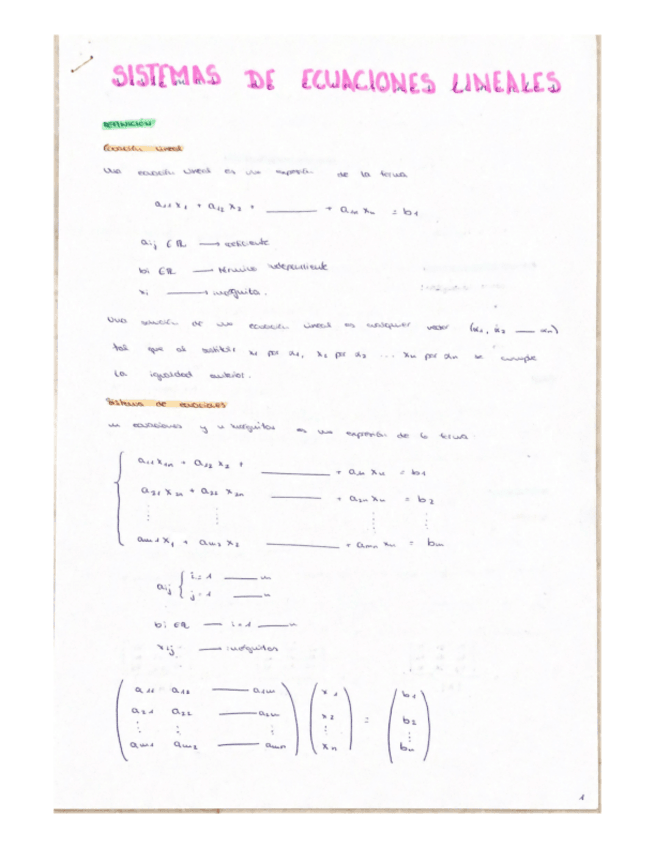 SISTEMAS DE ECUACIONES LINEALES
DEFINICIÓN
Ecuación lineal
Una ecuación lineal es una expresión de la forma
a₁₁x₁ + a₁₂x₂ + ——— + a₁ₙxₙ = b₁
aᵢⱼ ∈ ℝ ⟶ coeficiente
bᵢ ∈ ℝ — término independiente
xᵢ ⟶ incógnita.
Una solución de una ecuación lineal es cualquier vector (α₁, α₂ —— αₙ)
tal que al sustituir x₁ por α₁, x₂ por α₂ ... xₙ por αₙ se cumple
la igualdad anterior.
Sistemas de ecuaciones
m ecuaciones y n incógnitas es una expresión de la forma.
a₁₁x₁ₙ + a₁₂x₂ + ——— + a₁ₙxₙ = b₁
a₂₁x₂ₙ + a₂₂x₂ₙ ——— + a₂ₙxₙ = b₂
⋮ ⋮ ⋮ ⋮
aₘ₁x₁ + aₘ₂x₂ ——— + aₘₙxₙ = bₘ
aᵢⱼ { i=1 —— m
j=1 —— n
bᵢ ∈ ℝ — i=1 ——
xᵢⱼ ⟶ incógnitas
( a₁₁ a₁₂ —— a₁ₙ ) ( x₁ ) ( b₁ )
( a₂₁ a₂₂ —— a₂ₙ ) ( x₂ ) = ( b₂ )
( ⋮ ⋮ ⋮ ) ( ⋮ ) ( ⋮ )
( aₘ₁ aₘ₂ —— aₘₙ ) ( xₙ ) ( bₘ )
1